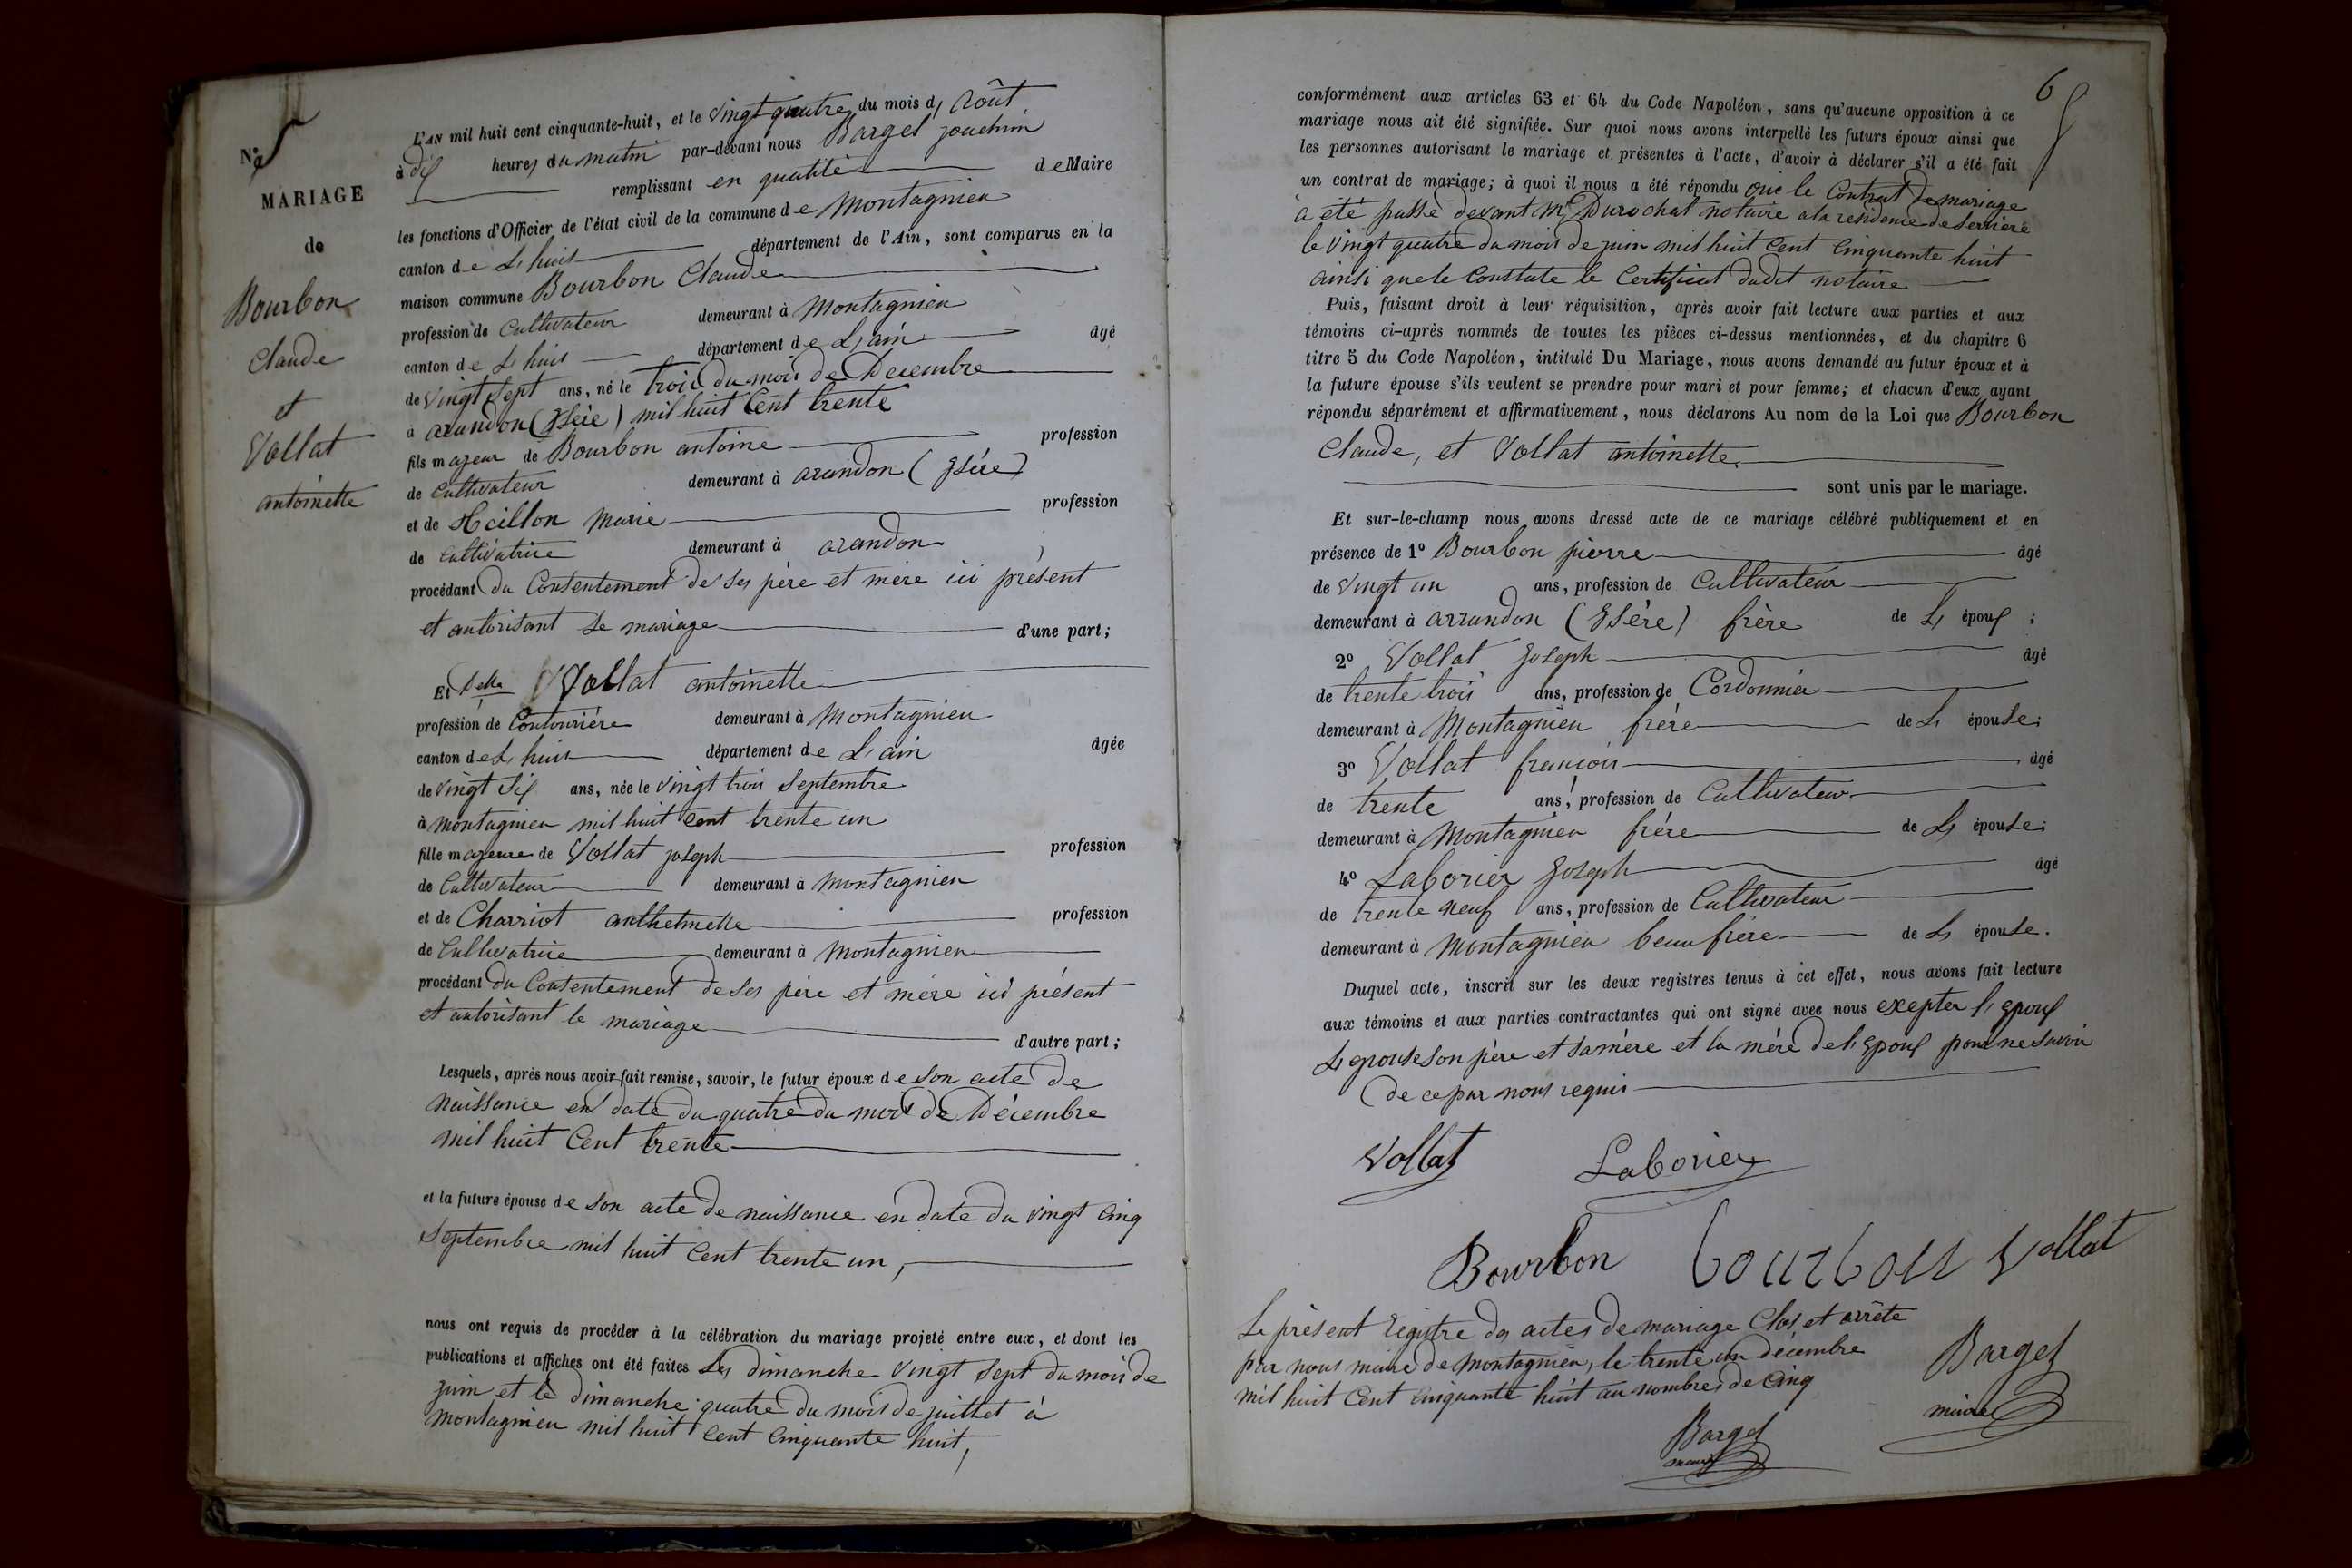 N.º 5
MARIAGE
de
Bourbon
Claude
et
Vollat
antoinette
L'AN mil huit cent cinquante-huit, et le vingt quatre du mois d' Août
à dix heures du matin par-devant nous Barget joachim
remplissant en qualité de Maire
les fonctions d'Officier de l'état civil de la commune de Montagnieu
canton de L'huis département de l'Ain, sont comparus en la
maison commune Bourbon Claude
profession de Cultivateur demeurant à Montagnieu
canton de L'huis département de L'ain âgé
de vingt sept ans, né le trois du mois de Decembre
à arandon (Isère) mil huit Cent trente
fils majeur de Bourbon antoine profession
de Cultivateur demeurant à arandon (Isére)
et de Marie profession
de Cultivatrice demeurant à arandon
procédant du Consentement de ses père et mère ici présent
et autorisant le mariage d'une part;
Et Delle Vollat antoinette
profession de Couturiére demeurant à Montagnieu
canton de L'huis département de L'ain âgée
de vingt Six ans, née le vingt trois Septembre
à Montagnieu mil huit Cent trente un
fille majeure de Vollat joseph profession
de Cultivateur demeurant à Montagnieu
et de Charriot anthelmette profession
de Cultivatrice demeurant à Montagnieu
procédant du Consentement de ses père et mére ici présent
et autorisant le mariage d'autre part;
Lesquels, après nous avoir fait remise, savoir, le futur époux de son acte de
Naissance en date du quatre du mois de Décembre
mil huit Cent trente
et la future épouse de son acte de naissance en date du vingt Cinq
Septembre mil huit Cent trente un,
nous ont requis de procéder à la célébration du mariage projeté entre eux, et dont les
publications et affiches ont été faites Les dimanche vingt Sept du mois de
juin et le dimanche quatre du mois de juillet à
Montagnieu mil huit Cent Cinquante huit,
6
conformément aux articles 63 et 64 du Code Napoléon, sans qu'aucune opposition à ce
mariage nous ait été signifiée. Sur quoi nous avons interpellé les futurs époux ainsi que
les personnes autorisant le mariage et présentes à l'acte, d'avoir à déclarer s'il a été fait
un contrat de mariage; à quoi il nous a été répondu que le Contrat de mariage
à été passé devant Me Durochat notaire a la residence de Serriere
le vingt quatre du mois de juin mil huit Cent Cinquante huit
ainsi que le Constate le Certificat dudit notaire
Puis, faisant droit à leur réquisition, après avoir fait lecture aux parties et aux
témoins ci-après nommés de toutes les pièces ci-dessus mentionnées, et du chapitre 6
titre 5 du Code Napoléon, intitulé Du Mariage, nous avons demandé au futur époux et à
la future épouse s'ils veulent se prendre pour mari et pour femme; et chacun d'eux ayant
répondu séparément et affirmativement, nous déclarons Au nom de la Loi que Bourbon
Claude, et Vollat antoinette
sont unis par le mariage.
Et sur-le-champ nous avons dressé acte de ce mariage célébré publiquement et en
présence de 1º Bourbon pierre âgé
de vingt un ans, profession de Cultivateur
demeurant à arrandon (Isère) frère de L' époux;
2º Vollat Joseph âgé
de trente trois ans, profession de Cordonnier
demeurant à Montagnieu frère de L' épouse;
3º Vollat françois âgé
de trente ans, profession de Cultivateur
demeurant à Montagnieu frère de L' épouse;
4º Laborier Joseph âgé
de trente neuf ans, profession de Cultivateur
demeurant à Montagnieu beau frère de L' épouse.
Duquel acte, inscrit sur les deux registres tenus à cet effet, nous avons fait lecture
aux témoins et aux parties contractantes qui ont signé avec nous excepter l'Epoux
L'epouse son père et sa mère et la mère de l'Epoux pour ne savoir
de ce par nous requis
Vollat Laborier
Bourbon bourbon Vollat
Le présent registre des actes de mariage Clos et arrête
par nous maire de Montagnieu, le trente un décembre
mil huit Cent Cinquante huit au nombre de Cinq
Barget
maire
Barget
maire